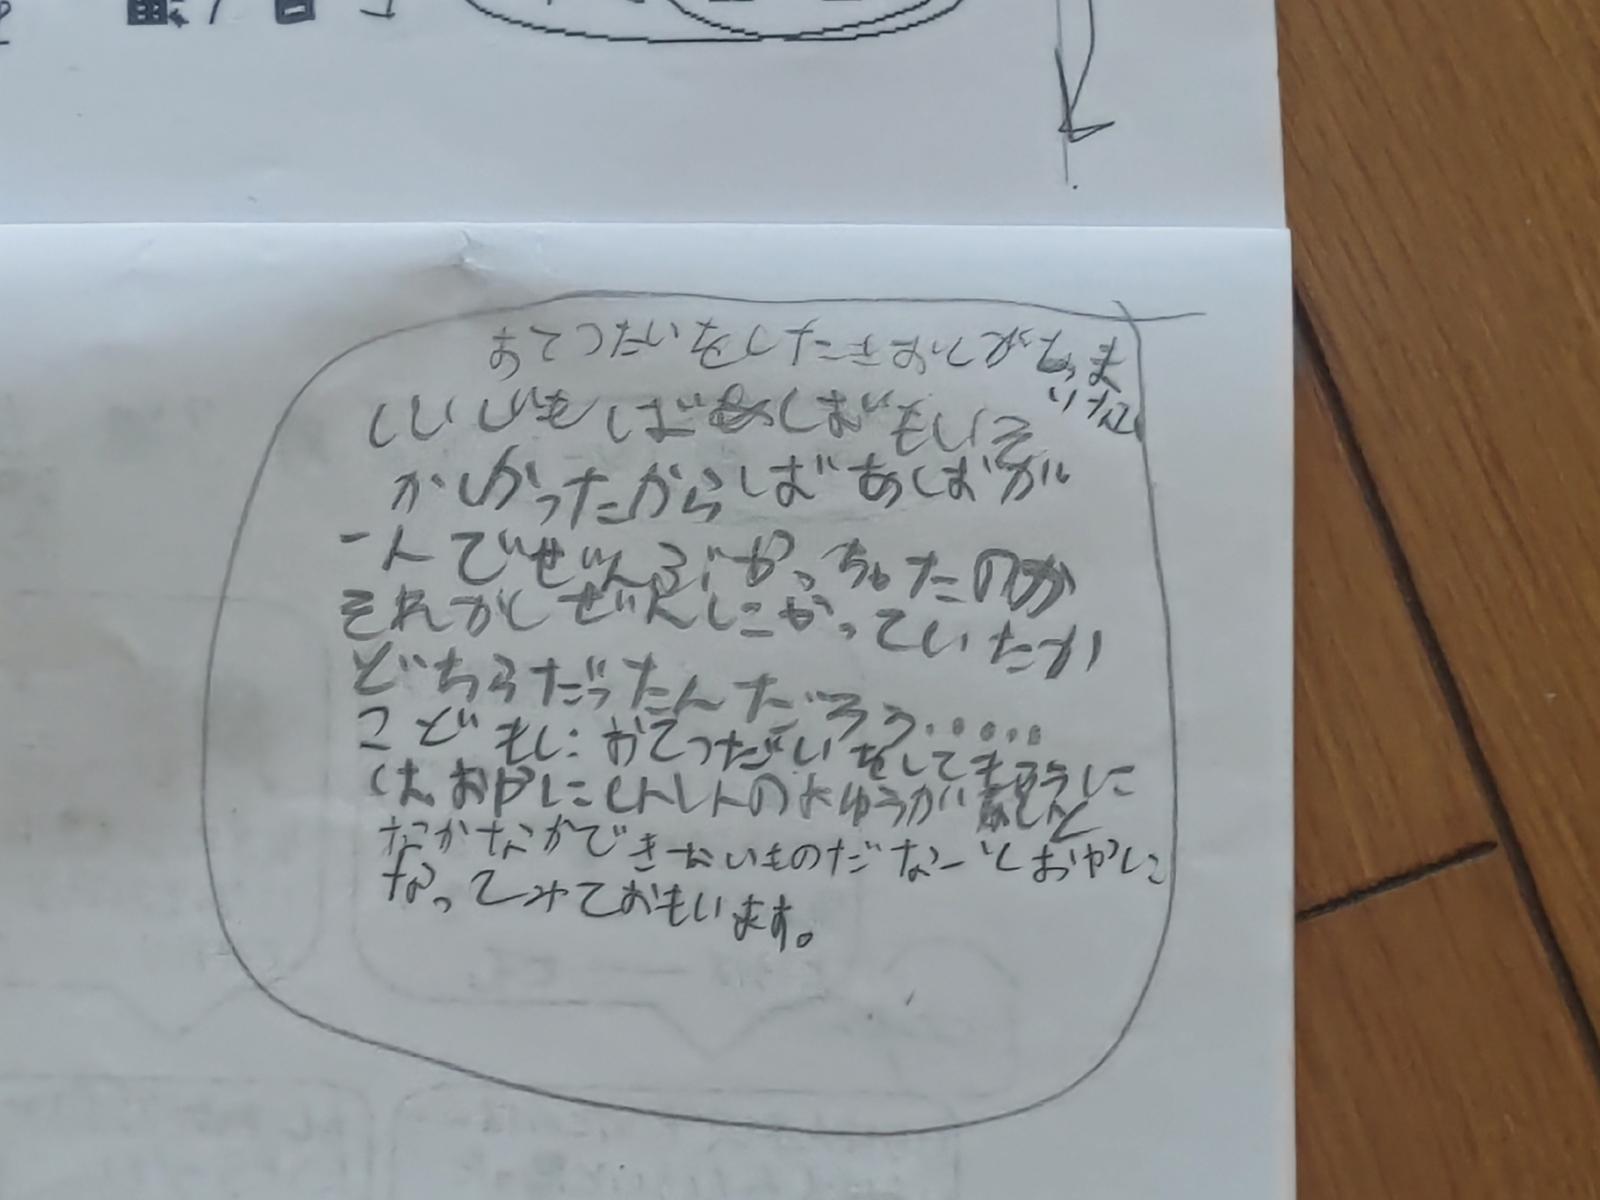 おてつだいをしたきおくがあ
りません
じいじもばあばもいそ
がしかったからばあばが
一人でぜんぶやっちゃたのか
それがしぜんにやっていたか
どちらだったんだろう.....
こどもにおてつだいをしてもらうに
はおやに しんしんのよゆうがないと
なかなかできないものだなーとおやに
なってみておもいます。